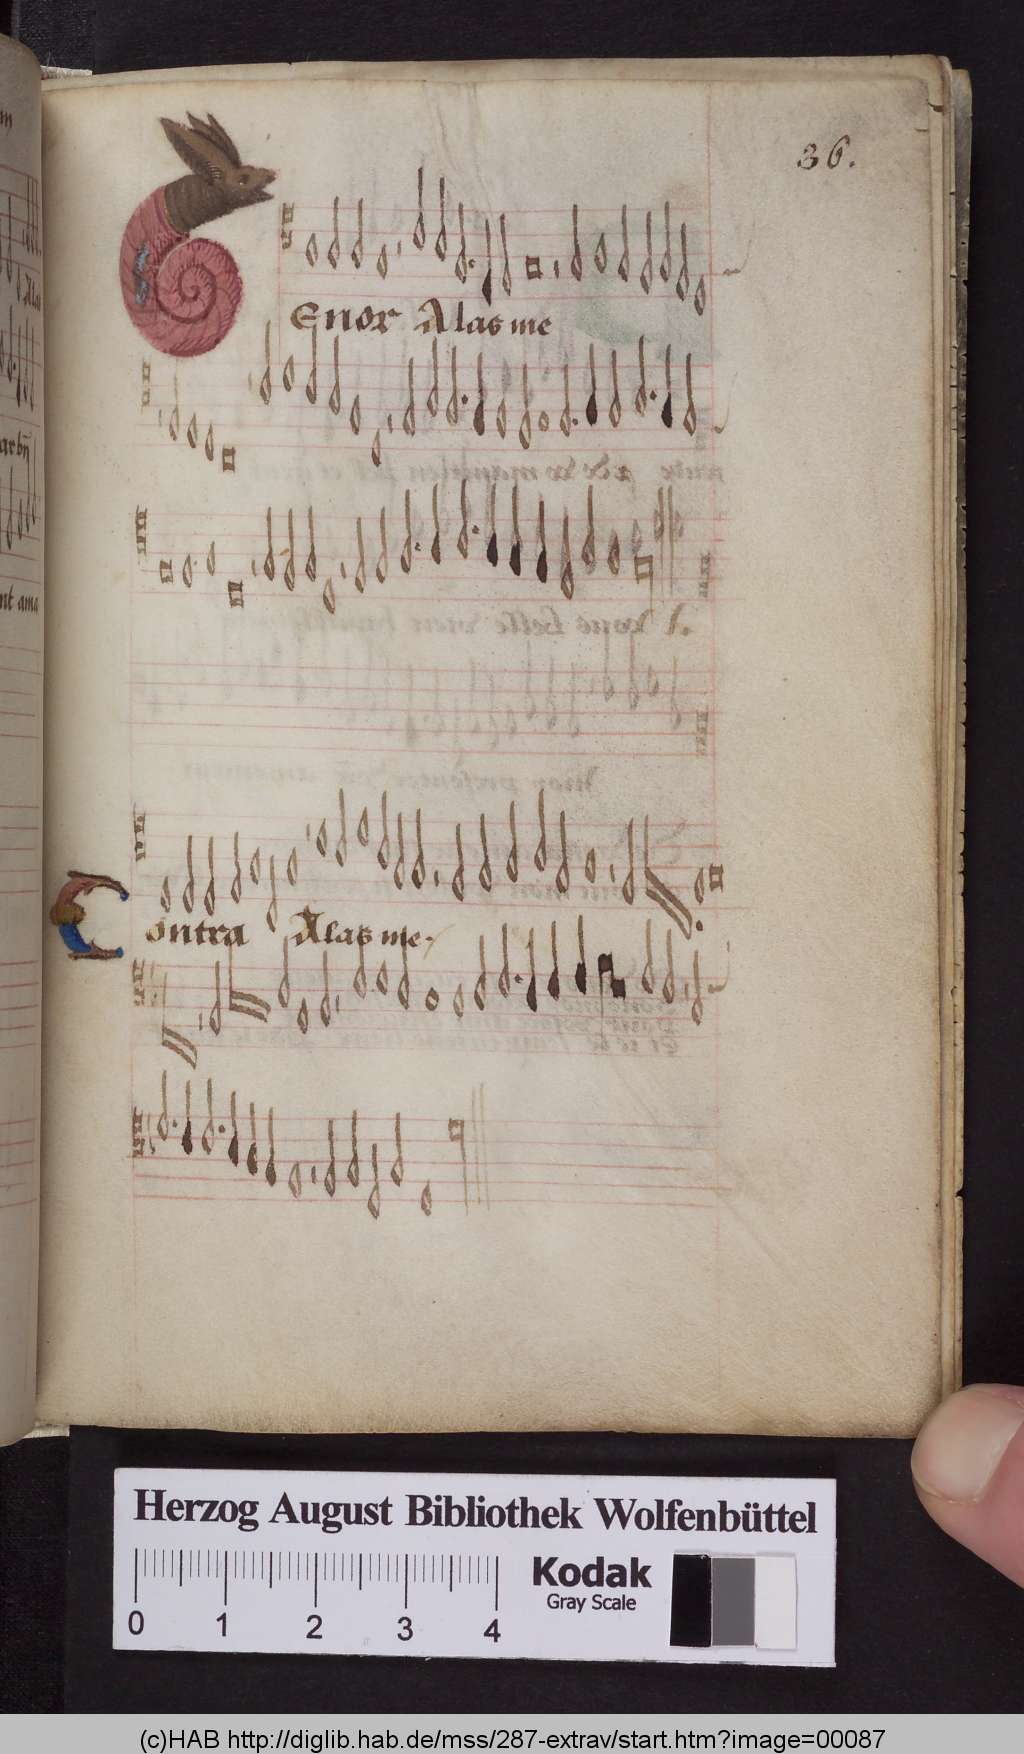 36.
Enor Alas me
ontra Alas me.
ar bñ
nt ama
Herzog August Bibliothek Wolfenbüttel
Kodak
Gray Scale
0 1 2 3 4
(c)HAB http://diglib.hab.de/mss/287-extrav/start.htm?image=00087